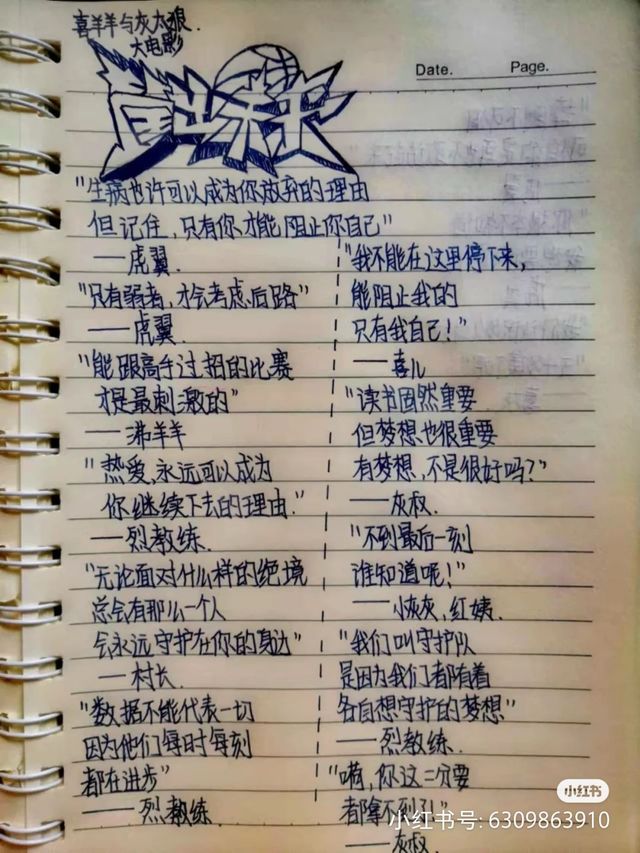 喜羊羊与灰太狼
大电影
筐出未来
Date.
Page.
"生病也许可以成为你放弃的理由
但记住，只有你，才能阻止你自己"
——虎翼.
"只有弱者，才会考虑后路"
——虎翼.
"能跟高手过招的比赛
才是最刺激的"
——沸羊羊
"热爱，永远可以成为
你继续下去的理由."
——烈教练.
"无论面对什么样的绝境
总会有那么一个人
会永远守护在你的身边"
——村长.
"数据不能代表一切
因为他们每时每刻
都在进步"
——烈教练.
"我不能在这里停下来，
能阻止我的
只有我自己！"
——喜儿
"读书固然重要
但梦想也很重要
有梦想，不是很好吗？"
——灰叔.
"不到最后一刻
谁知道呢！"
——小灰灰，红姨.
"我们叫守护队
是因为我们都有着
各自想守护的梦想"
——烈教练.
"嗬，你这二分要
都拿不到了！"
——灰叔.
小红书
小红书号: 6309863910